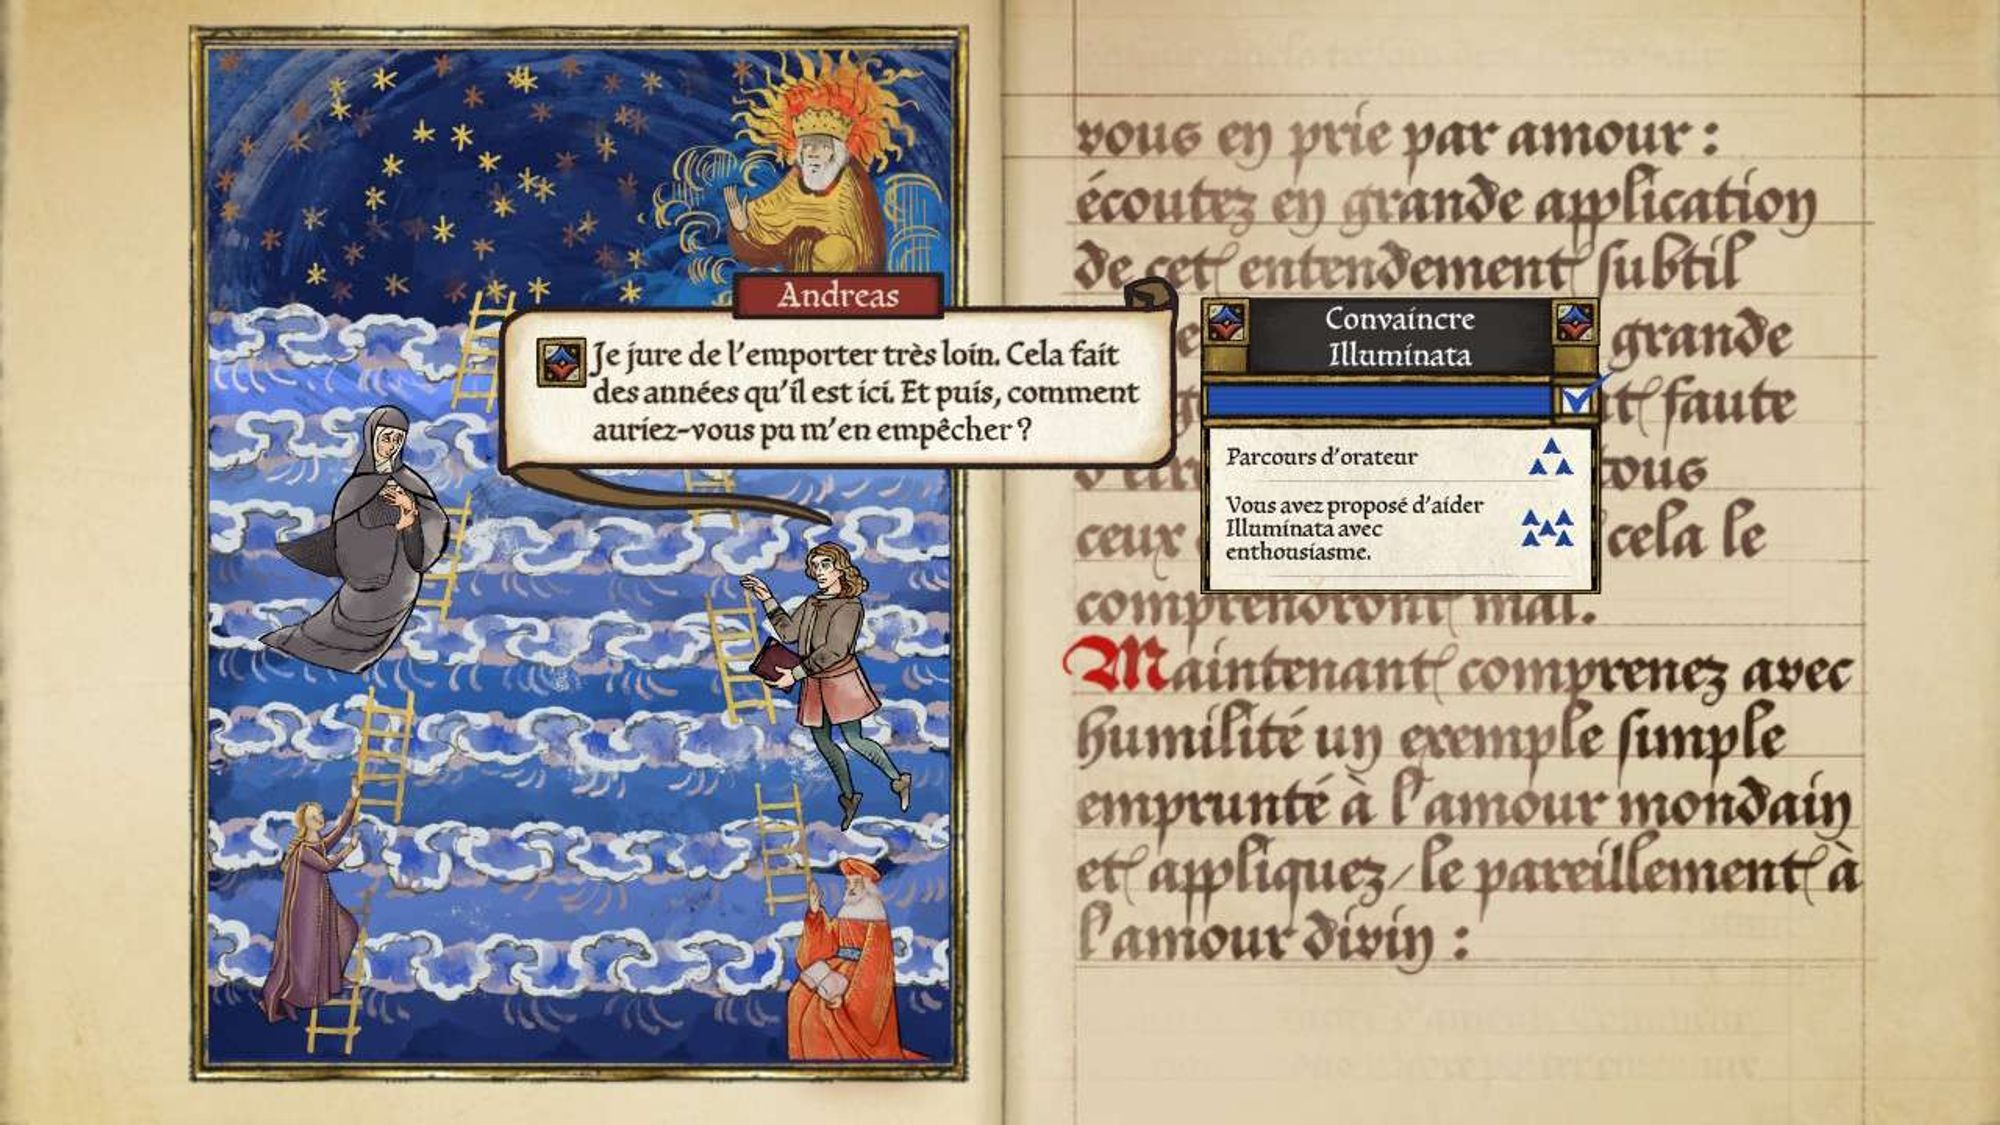 Andreas
Je jure de l'emporter très loin. Cela fait
des années qu'il est ici. Et puis, comment
auriez-vous pu m'en empêcher ?
Convaincre
Illuminata
Parcours d'orateur
Vous avez proposé d'aider
Illuminata avec
enthousiasme.
vous en prie par amour :
écoutez en grande application
de cet entendement subtil
grande
faute
tous
ceux cela le
comprendront mal.
Maintenant comprenez avec
humilité un exemple simple
emprunté à l'amour mondain
et appliquez-le pareillement à
l'amour divin :